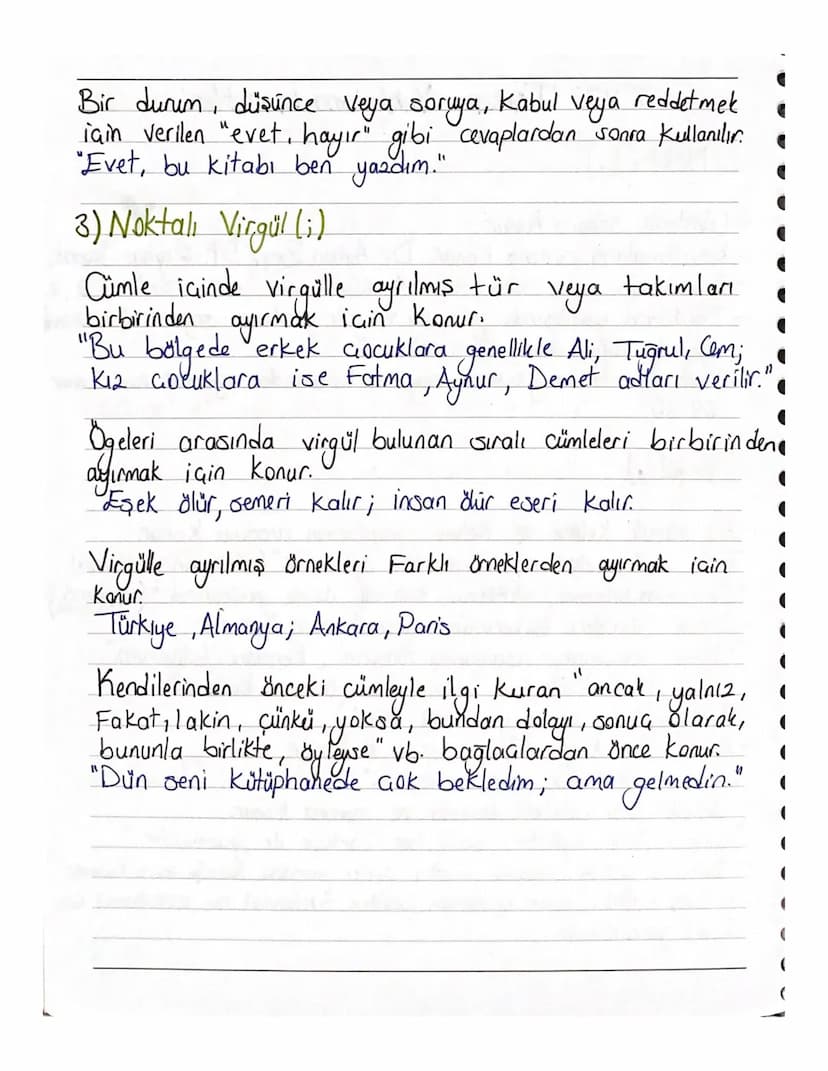 Bir durum, düşünce veya soruya, Kabul veya reddetmek
için verilen "evet, hayır" gibi cevaplardan sonra kullanılır.
"Evet, bu kitabı ben yazdım."
3) Noktalı Virgül (;)
Cümle içinde virgülle ayrılmış tür veya takımları
birbirinden ayırmak için Konur.
"Bu bölgede erkek çocuklara genellikle Ali, Tuğrul, Cem;
Kız çocuklara ise Fatma, Aynur, Demet adları verilir."
Ögeleri arasında virgül bulunan sıralı cümleleri birbirinden
ayırmak için Konur.
Eşek ölür, semeri Kalır; insan ölür eseri Kalır.
Virgülle ayrılmış örnekleri Farklı örneklerden ayırmak için
Konur.
Türkiye, Almanya; Ankara, Paris
Kendilerinden önceki cümleyle ilgi Kuran "ancak, yalnız,
Fakat, lakin, çünkü, yoksa, bundan dolayı, sonuç olarak,
bununla birlikte, öyleyse" vb. bağlaçlardan önce Konur.
"Dün seni Kütüphanede çok bekledim; ama gelmedin."